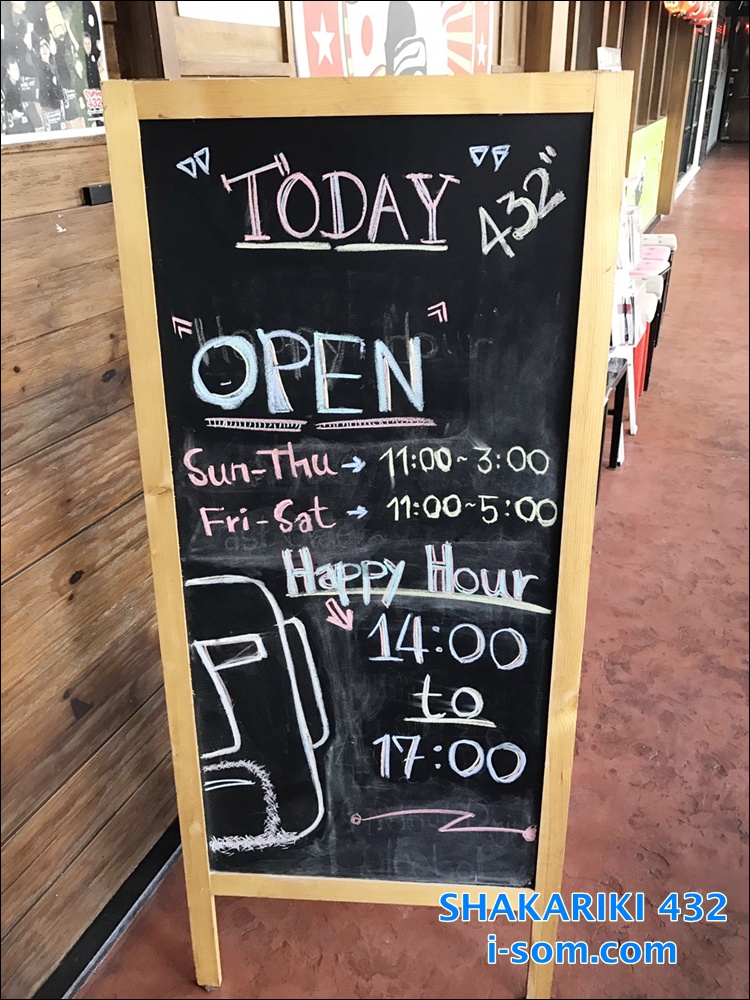 "TODAY"
432"
"OPEN"
Sun-Thu → 11:00~3:00
Fri-Sat → 11:00~5:00
Happy Hour
14:00
to
17:00
SHAKARIKI 432
i-som.com